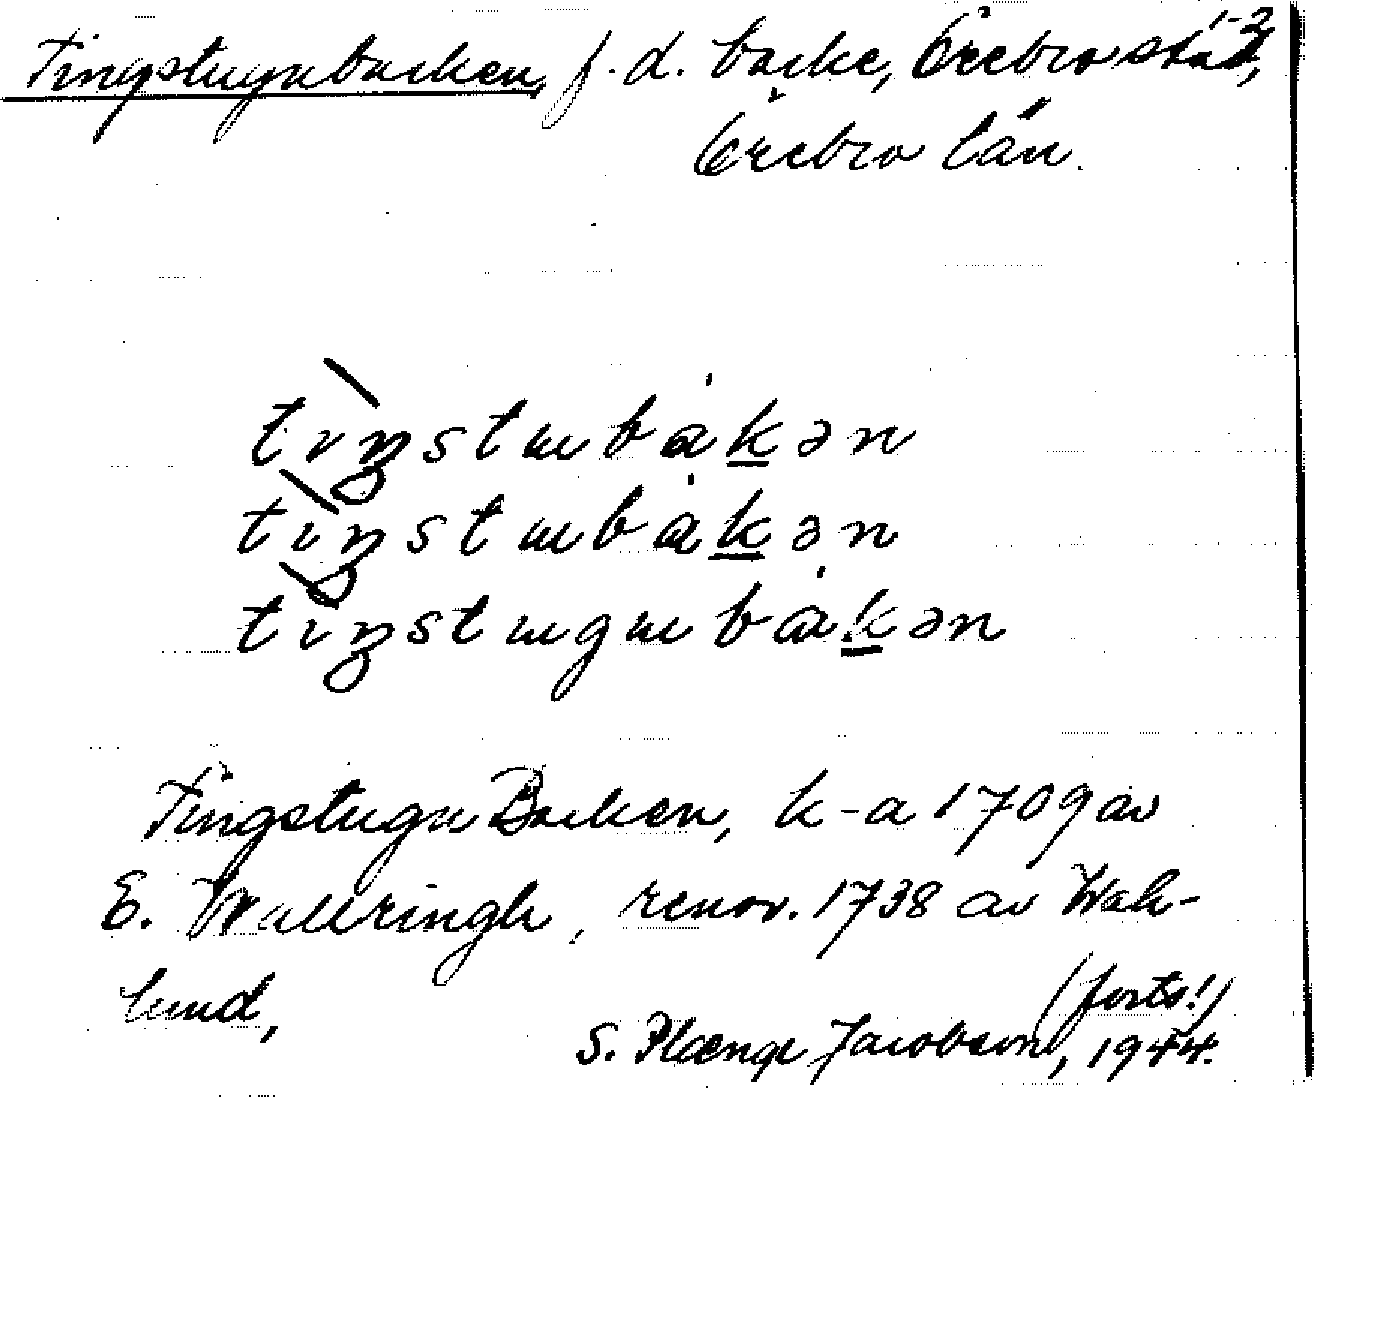 1-2
Tingstugubacken, f.d. backe, Örebro stad,
Örebro län.
tıŋstɯbakən
tıŋstɯbakən
tıŋstɯgɯbakən
Tingstugu Backen, k-a 1709 av
E. Wallringh, renov. 1738 av Wah-
lund,
(forts!)
S. Plænge Jacobson, 1944.